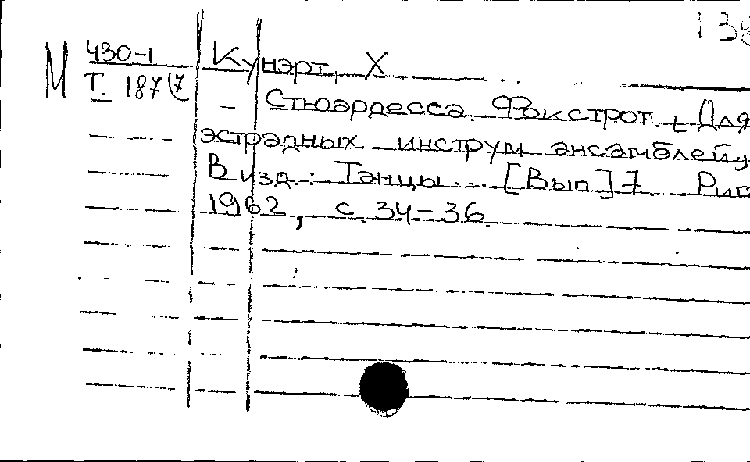 138
М 430-1 Кунэрт, Х
Т. 187/7 - Стюардесса. Фокстрот. [Для
эстрадных инструм ансамблей]
В изд.: Танцы. [Вып] 7 Риг
1962, с. 34-36.